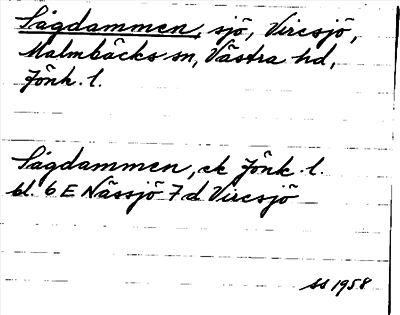 Sågdammen, sjö, Vircsjö,
Malmbäcks sn, Västra hd,
Jönk. l.
Sågdammen, ek Jönk. l.
bl. 6 E Nässjö 7 d Vircsjö
SS 1958